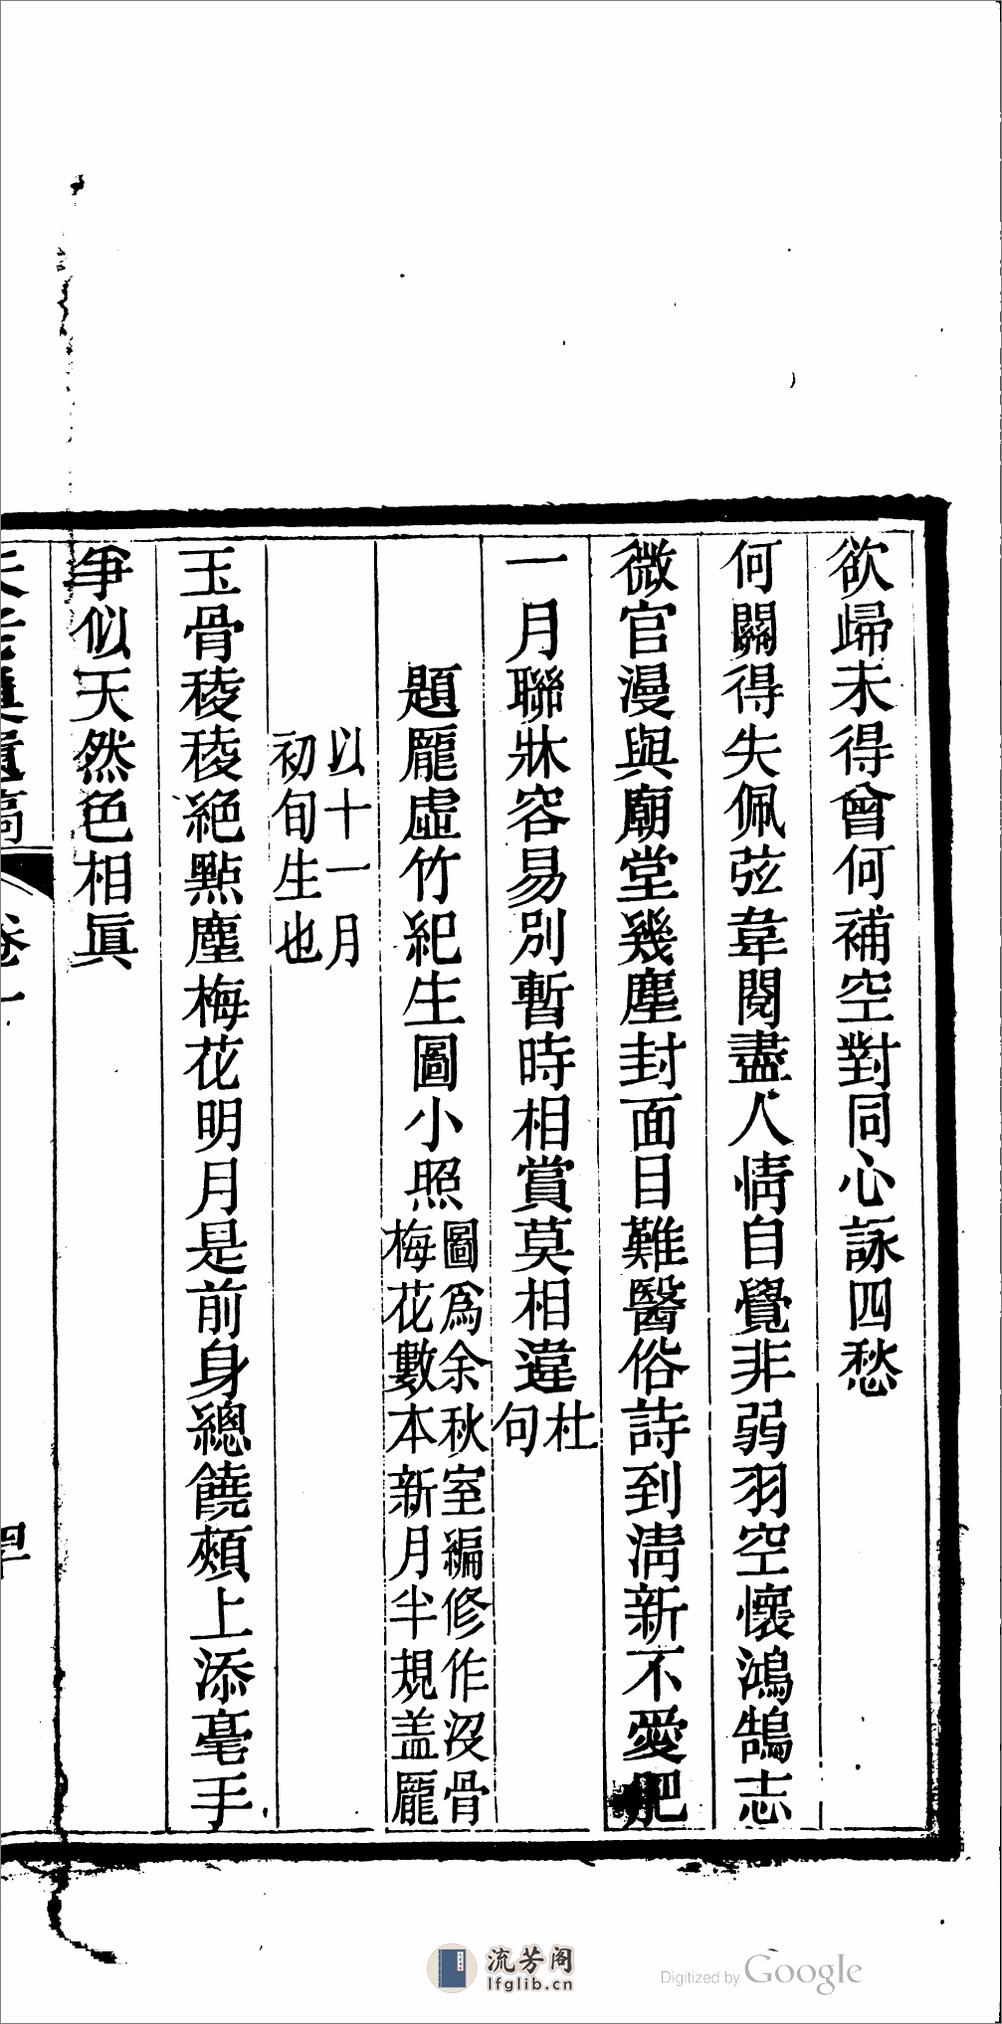 欲歸未得曾何補空對同心詠四愁
何關得失佩弦韋閱盡人情自覺非弱羽空懷鴻鵠志
微官漫與廟堂幾塵封面目難醫俗詩到淸新不愛肥
一月聯牀容易別暫時相賞莫相違杜句
題龎虛竹紀生圖小照圖爲余秋室編修作沒骨梅花數本新月半規盖龎
以十一月初旬生也
玉骨稜稜絕點塵梅花明月是前身總饒頰上添毫手
爭似天然色相眞
卷一
四
流芳阁
lfglib.cn
Digitized by Google